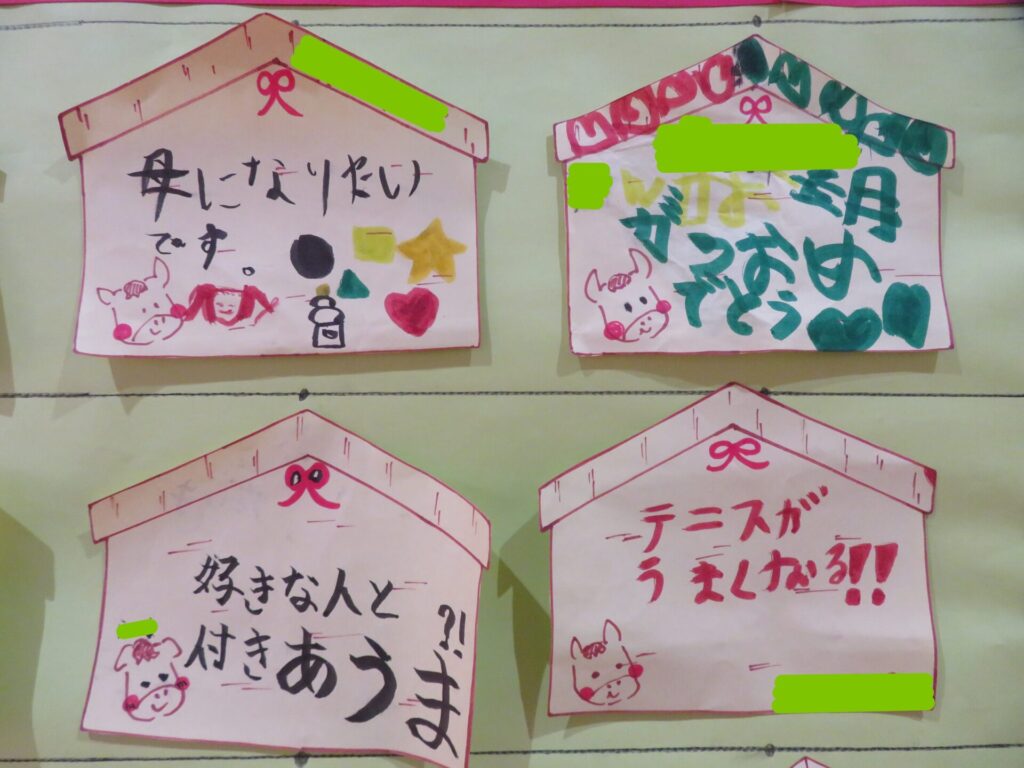 母になりたい
です。
お正月
がつおめ
でとう
好きな人と
付きあうま?!
テニスが
うまくなる!!